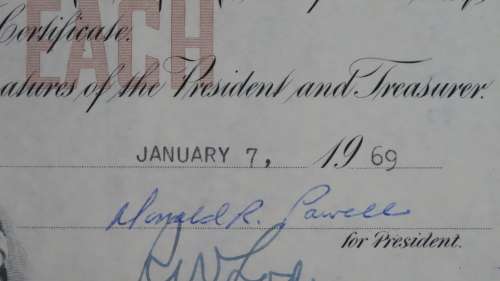 Certificate.
EACH
atures of the President and Treasurer.
JANUARY 7, 1969
Donald R. Powell
for President.